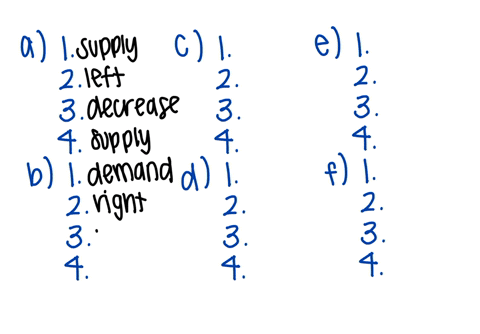 a) 1. supply
2. left
3. decrease
4. supply
b) 1. demand
2. right
3.
4.
c) 1.
2.
3.
4.
d) 1.
2.
3.
4.
e) 1.
2.
3.
4.
f) 1.
2.
3.
4.